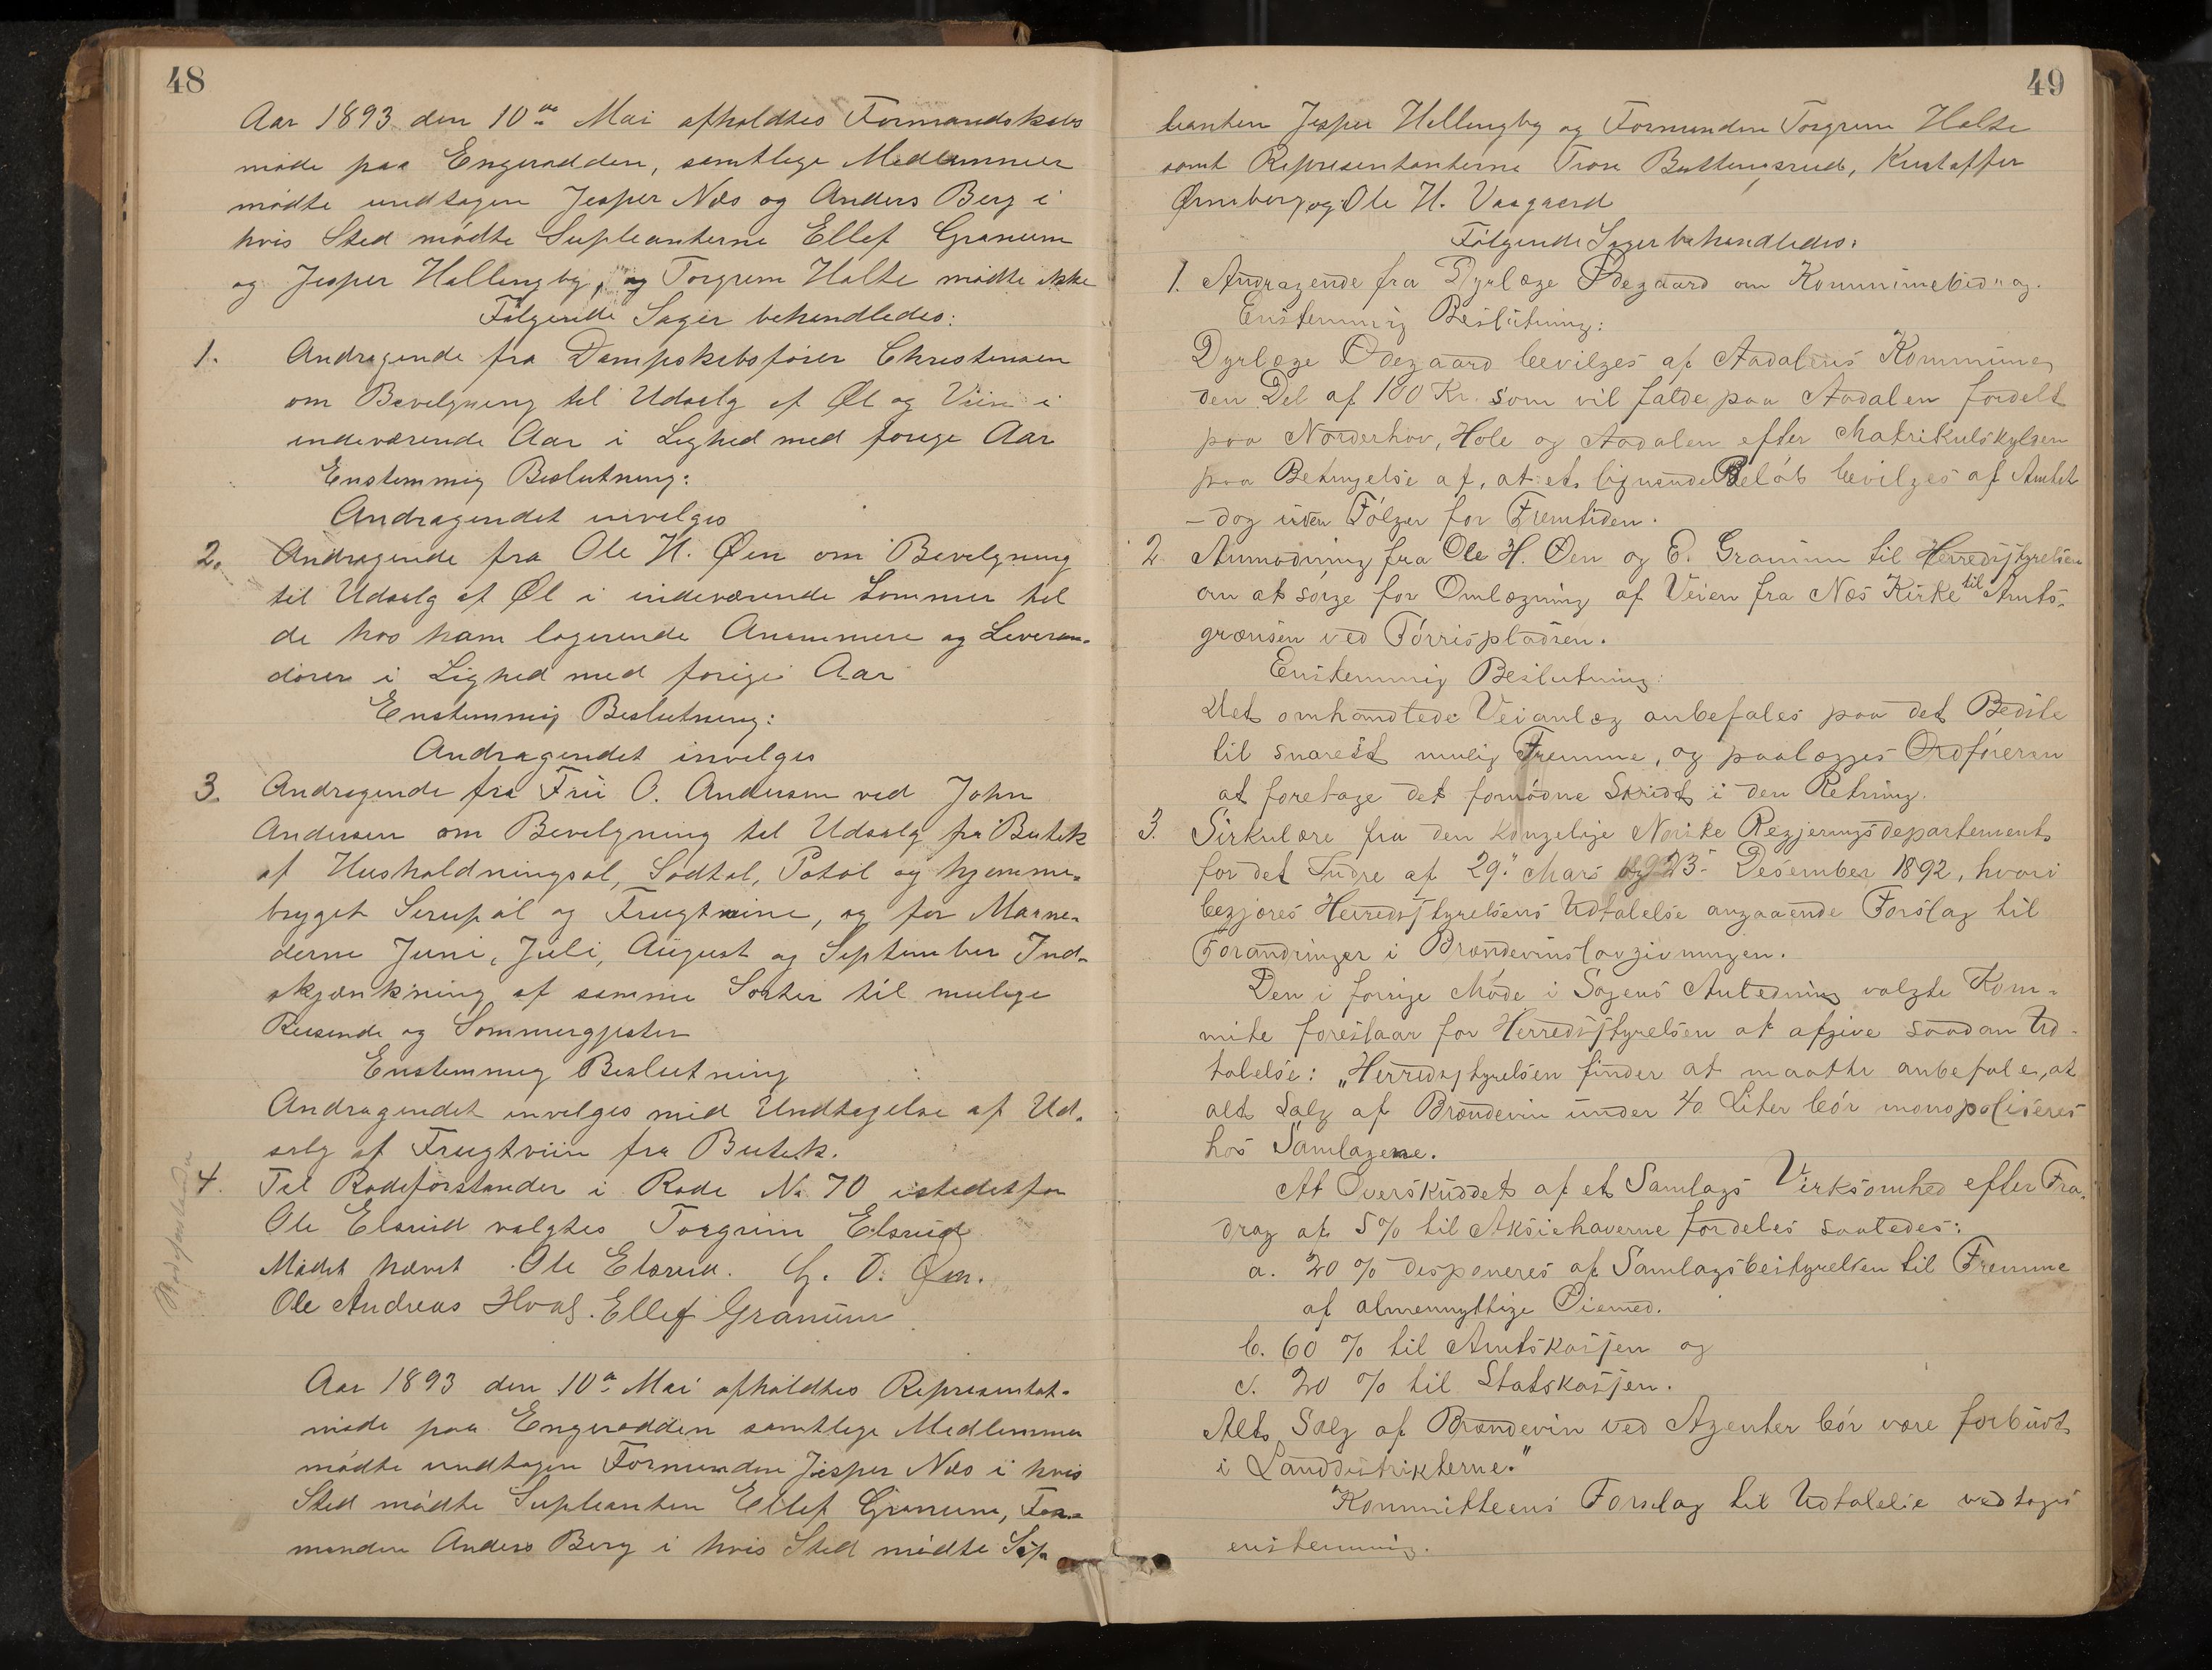 48
Aar 1893 den 10de Mai afholdtes Formandskabs
møde paa Engerodden, samtlige Medlemmer
mødte undtagen Jesper Næs og Anders Berg i
hvis Sted mødte Supleanterne Ellef Granum
og Jesper Hallingby, og Torgrim Holte mødte ikke
Følgende Sager behandledes:
1. Andragende fra Dampskibsfører Christensen
om Bevilgning til Udsalg af Øl og Viin i
indeværende Aar i Lighed med forige Aar
Enstemmig Beslutning:
Andragendet invilges
2. Andragende fra Ole H. Øen om Bevilgning
til Udsalg af Øl i indeværende Sommer til
de hos ham logerende Anammere og Leveran-
dører i Lighed med forige Aar
Enstemmig Beslutning:
Andragendet invilges
3. Andragende fra Frü O. Andersen ved John
Andersen om Bevilgning til Udsalg fra Butik
af Husholdningsøl, Sødtøl, Potøl og hjemme-
brygget Serupøl og Frugtvine, og for Maane-
derne Juni, Juli, August og September Ind-
skjænkning af samme Sorter til mulige
Reisende og Sommergjester
Enstemmig Beslutning
Andragendet invilges med Undtagelse af Ud-
salg af Frugtviin fra Butik.
4. Til Rodeforstander i Rode No 70 istedetfor
Ole Elsrud valgtes Torgrim Elsrud
Mødet hævet. Ole Elsrud. G. O. Øen.
Ole Andreas Hval. Ellef Granum
Rodeforstander
Aar 1893 den 10de Mai afholdtes Representat-
møde paa Engerodden samtlige Medlemmer
mødte undtagen Formanden Jesper Næs i hvis
Sted mødte Supleanten Ellef Granum, For-
manden Anders Berg i hvis Sted mødte Sup
49
leanten Jesper Hallingby og Formanden Torgrim Holte
samt Representanterne Tron Buttingsrud, Kristoffer
Ørneberg og Ole H. Vaagaard
Følgende Sager behandledes:
1. Andragende fra Dyrlæge Ødegaard om Kommunebidrag.
Enstemmig Beslutning:
Dyrlæge Ødegaard bevilges af Aadalens Kommune
den Del af 100 Kr. som vil falde paa Aadalen fordelt
paa Norderhov, Hole og Aadalen efter Matrikulskylden
paa Betingelse af, at et lignende Beløb bevilges af Amtet
– dog uden Følger for Fremtiden.
2 Anmodning fra Ole H. Øen og E. Granum til Herredsstyrelsen
om at sørge for Omlægning af Veien fra Næs Kirke til Amts-
grænsen ved Tørrispladsen.
Enstemmig Beslutning:
Det omhandlede Veianlæg anbefales paa det Bedste
til snarest mulig Fremme, og paalægges Ordføreren
at foretage det fornødne Skridt i den Retning.
3. Sirkulære fra den kongelige Norske Regjeringsdepartement
for det Indre af 29de Mars og 23de Desember 1892, hvori
begjæres Herredsstyrelsens Udtalelse angaaende Forslag til
Forandringer i Brændevinslovgivningen.
Den i forrige Møde i Sagens Anledning valgte Kom-
mite foreslaar for Herredsstyrelsen at afgive saadan Ud-
talelse: „Herredsstyrelsen finder at maatte anbefale, at
alt Salg af Brændevin under 40 Liter bør monopoliseres
hos Samlagene.
At Overskuddet af et Samlags Virksomhed efter Fra-
drag af 5% til Aksiehaverne fordeles saaledes:
a. 20 % disponeres af Samlagsbestyrelsen til Fremme
af almennyttige Øiemed.
b. 60 % til Amtskassen og
c. 20 % til Statskassen.
Alt Salg af Brændevin ved Agenter bør være forbudt
i Landdistrikterne."
Kommitteens Forslag til Udtalelse vedtages
enstemmig.